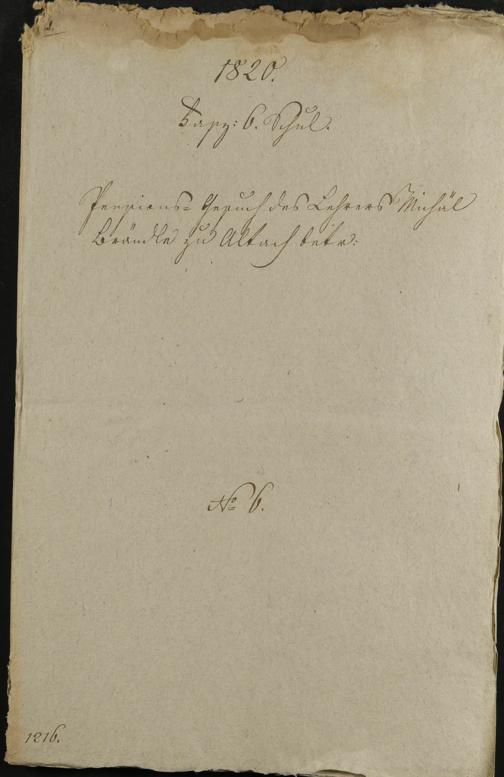 1820.
Fasz: 6. Schul.
Pensions= Gesuch des Lehrers Michäl
Brändle zu Altach betr:
No 6.
1216.